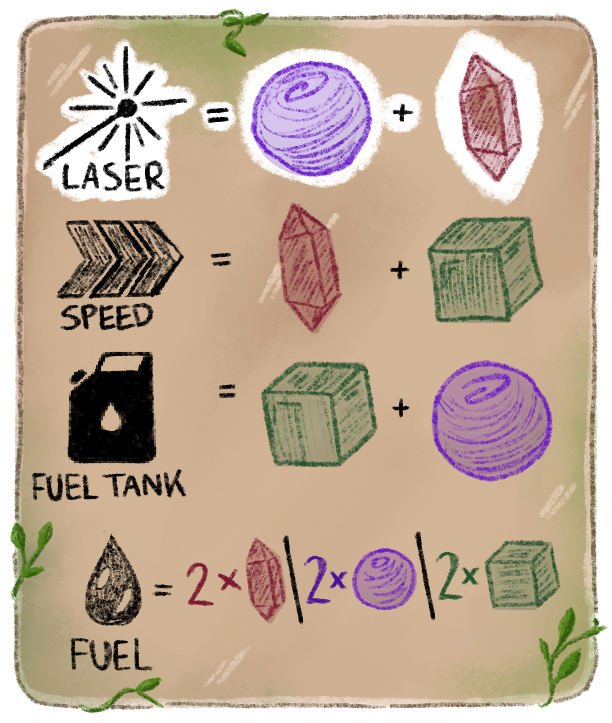 LASER = +
SPEED = +
FUEL TANK = +
FUEL = 2x | 2x | 2x